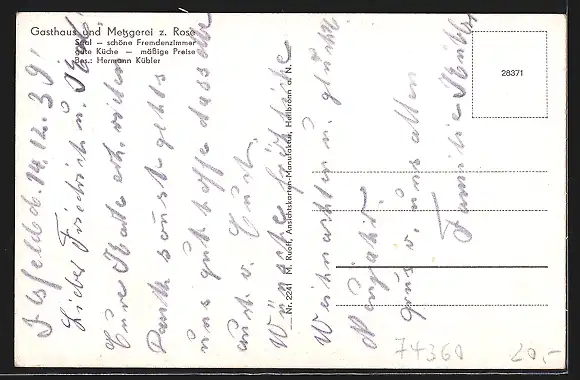 Gasthaus und Metzgerei z. Rose
Saal — schöne Fremdenzimmer
gute Küche — mäßige Preise
Bes.: Hermann Kübler
28371
Nr. 2241 M. Ruoff, Ansichtskarten-Manufaktur, Heilbronn a. N.
Ilsfeld d. 14.12.39
Lieber Friedrich u.
Eure Karte erh. vielen
Dank sonst gehts
uns gut hoffe dasselbe
auch v. Euch.
Wünsche fröhliche
Weihnachten u. glückl.
Neujahr.
Gruss v. uns allen
Familie Kübler
74360
20,-